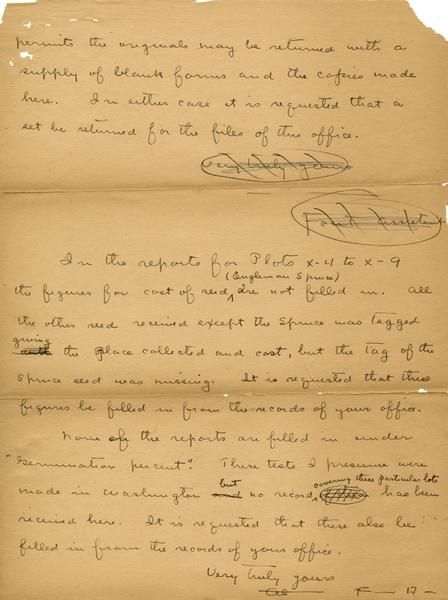 permits the originals may be returned with a
supply of blank forms and the copies made
here. In either case it is requested that a
set be returned for the files of this office.
Very truly yours
Forest Assistant
In the reports for Plots X-4 to X-9
(Engleman Spruce)
the figures for cost of seed are not filled in. All
the other seed received except the Spruce was tagged
giving
with the place collected and cost, but the tag of the
Spruce seed was missing. It is requested that these
figures be filled in from the records of your office.
None of the reports are filled in under
"Germination percent". These tests I presume were
but covering these particular lots
made in Washington and no records has been
received here. It is requested that these also be
filled in from the records of your office.
Very truly yours
F 17